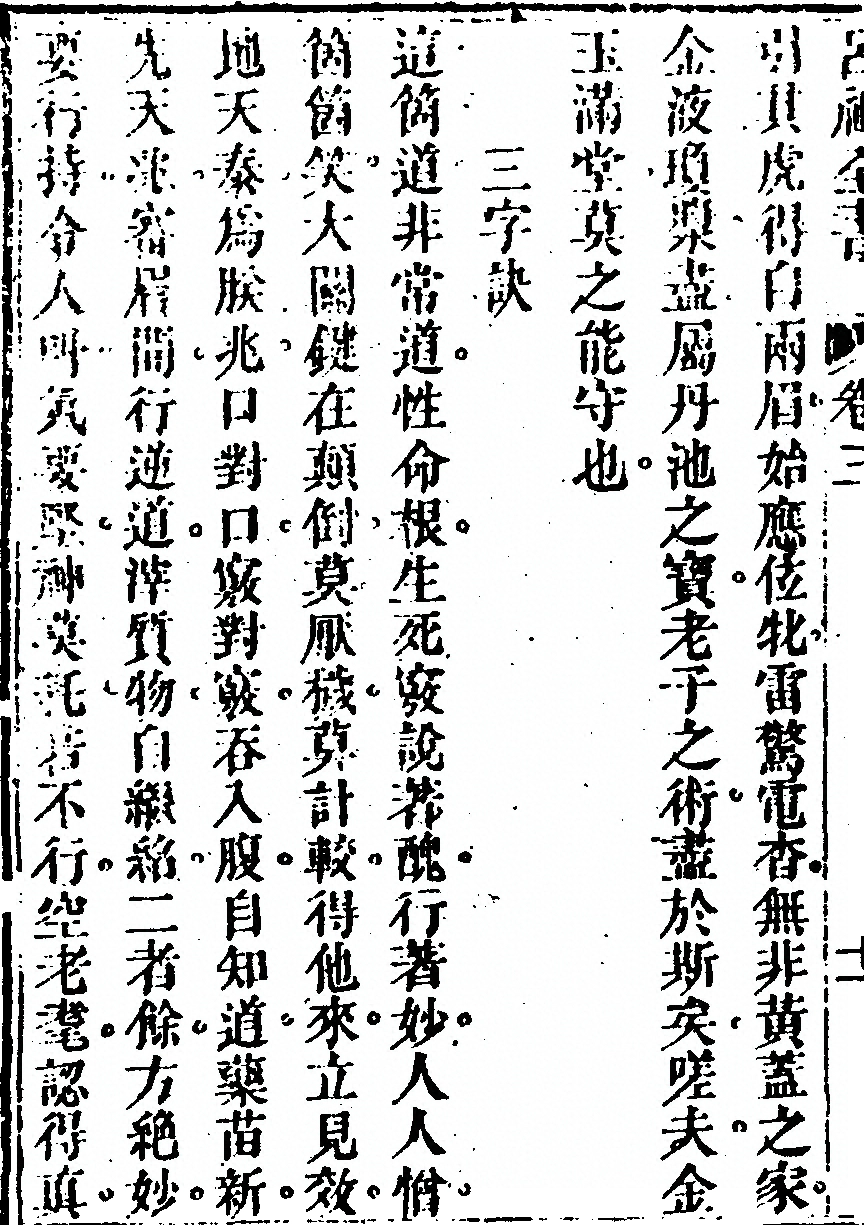 呂祖全書 卷三 十一
引其虎得白兩眉始應位牝雷驚電杳無非黃蓋之家
金液瓊漿盡屬丹池之寶老子之術盡於斯矣嗟夫金
玉滿堂莫之能守也
三字訣
這箇道非常道性命根生死竅說著醜行著妙人人憎
箇箇笑大關鍵在顛倒莫厭穢莫計較得他來立見效
地天泰為朕兆口對口竅對竅吞入腹自知道藥苗新
先天兆審眉間行逆道滓質物自繼紹二者餘方絕妙
要行持令人叫氣要堅神莫耗若不行空老耄認得真